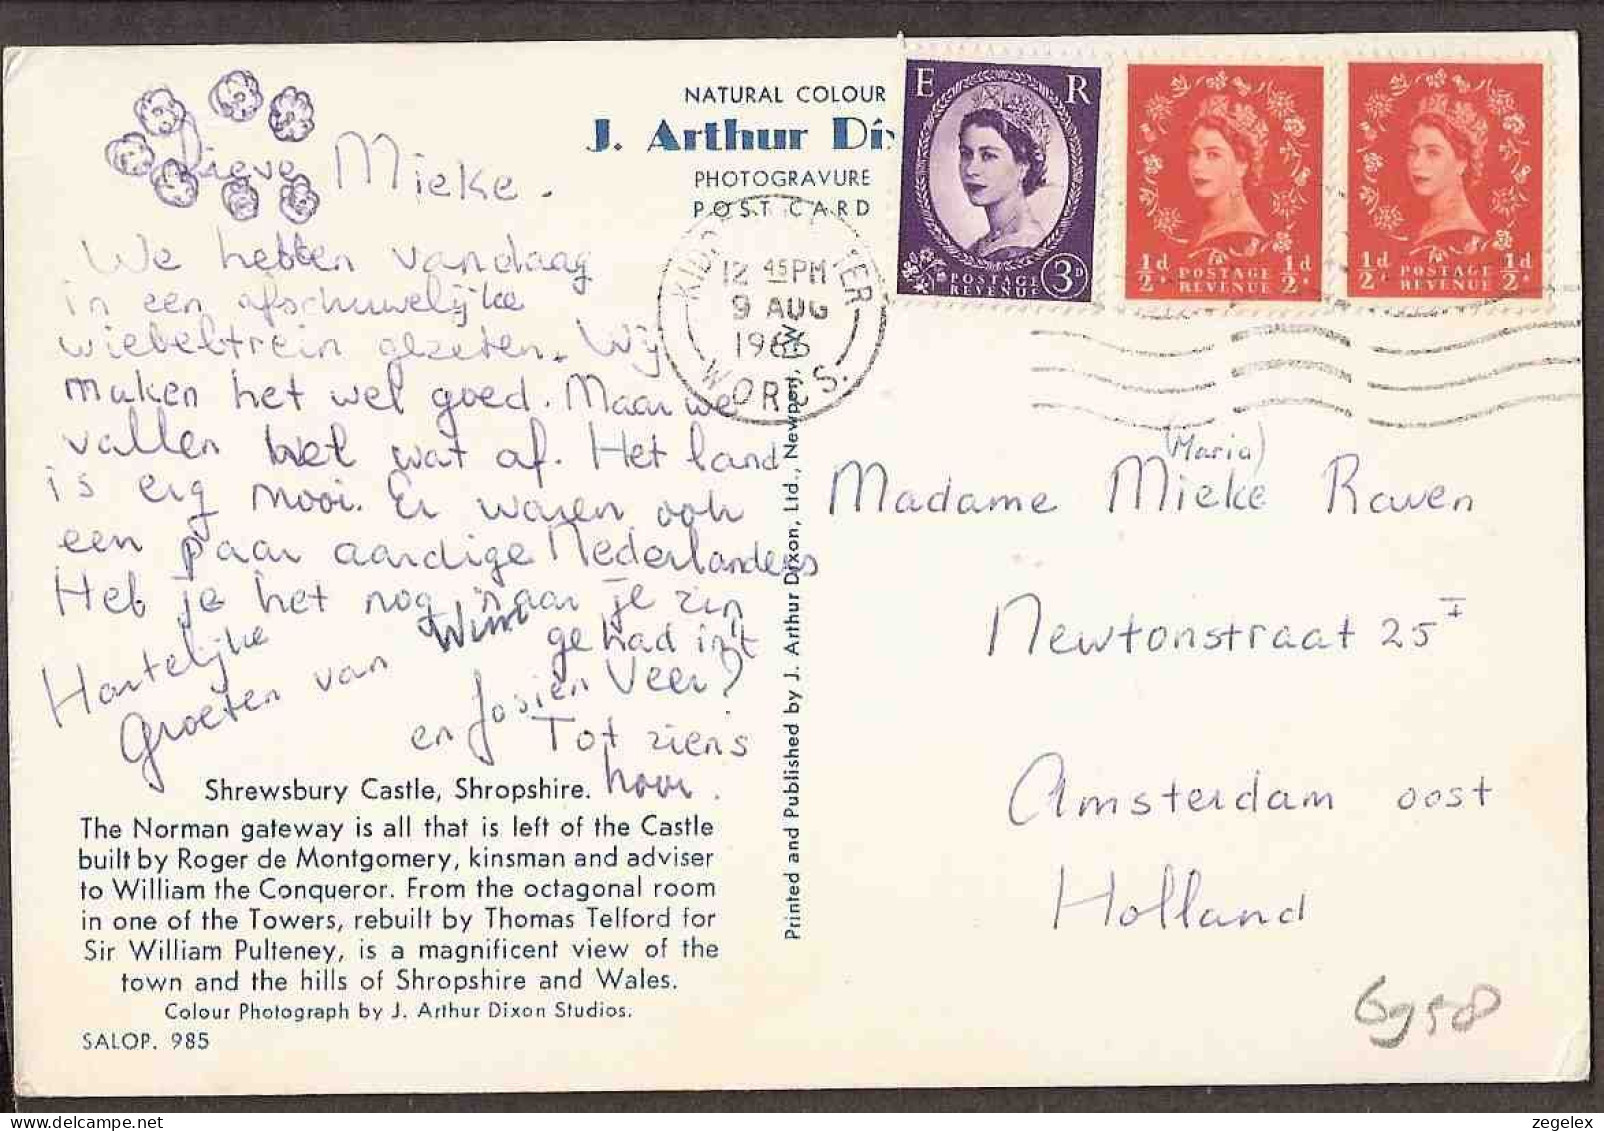 Lieve Mieke.
We hebben vandaag
in een afschuwelijke
wiebeltrein gezeten. Wij
maken het wel goed. Maar we
vallen wel wat af. Het land
is erg mooi. Er waren ook
een paar aardige Nederlanders
Heb je het nog naar je zin
gehad in't
Veer?
Tot ziens
hoor.
Hartelijke
Groeten van Wim
en Josien
Shrewsbury Castle, Shropshire.
The Norman gateway is all that is left of the Castle
built by Roger de Montgomery, kinsman and adviser
to William the Conqueror. From the octagonal room
in one of the Towers, rebuilt by Thomas Telford for
Sir William Pulteney, is a magnificent view of the
town and the hills of Shropshire and Wales.
Colour Photograph by J. Arthur Dixon Studios.
SALOP. 985
NATURAL COLOUR
J. Arthur Dix
PHOTOGRAVURE
POST CARD
Printed and Published by J. Arthur Dixon, Ltd., Newport,
12 45PM
9 AUG
WORCS.
E R
POSTAGE
REVENUE 3D
½d POSTAGE ½d
REVENUE
½d POSTAGE ½d
REVENUE
(Maria)
Madame Mieke Raven
Newtonstraat 25 I
Amsterdam oost
Holland
6958
zegelex